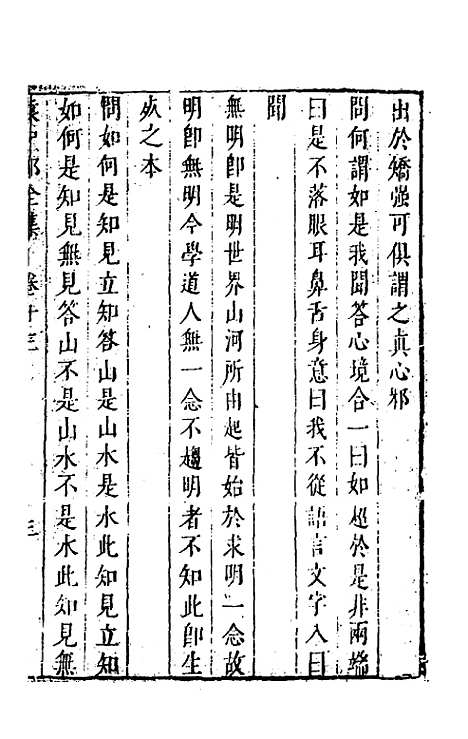 出於矯强可俱謂之真心邪
問何謂如是我聞答心境合一曰如超於是非兩端
曰是不落眼耳鼻舌身意曰我不從語言文字入曰
聞
無明卽是明世界山河所由起皆始於求明一念故
明卽無明今學道人無一念不趨明者不知此卽生
死之本
問如何是知見立知答山是山水是水此知見立知
如何是知見無見答山不是山水不是水此知見無
袁中郎全集 卷十三 三